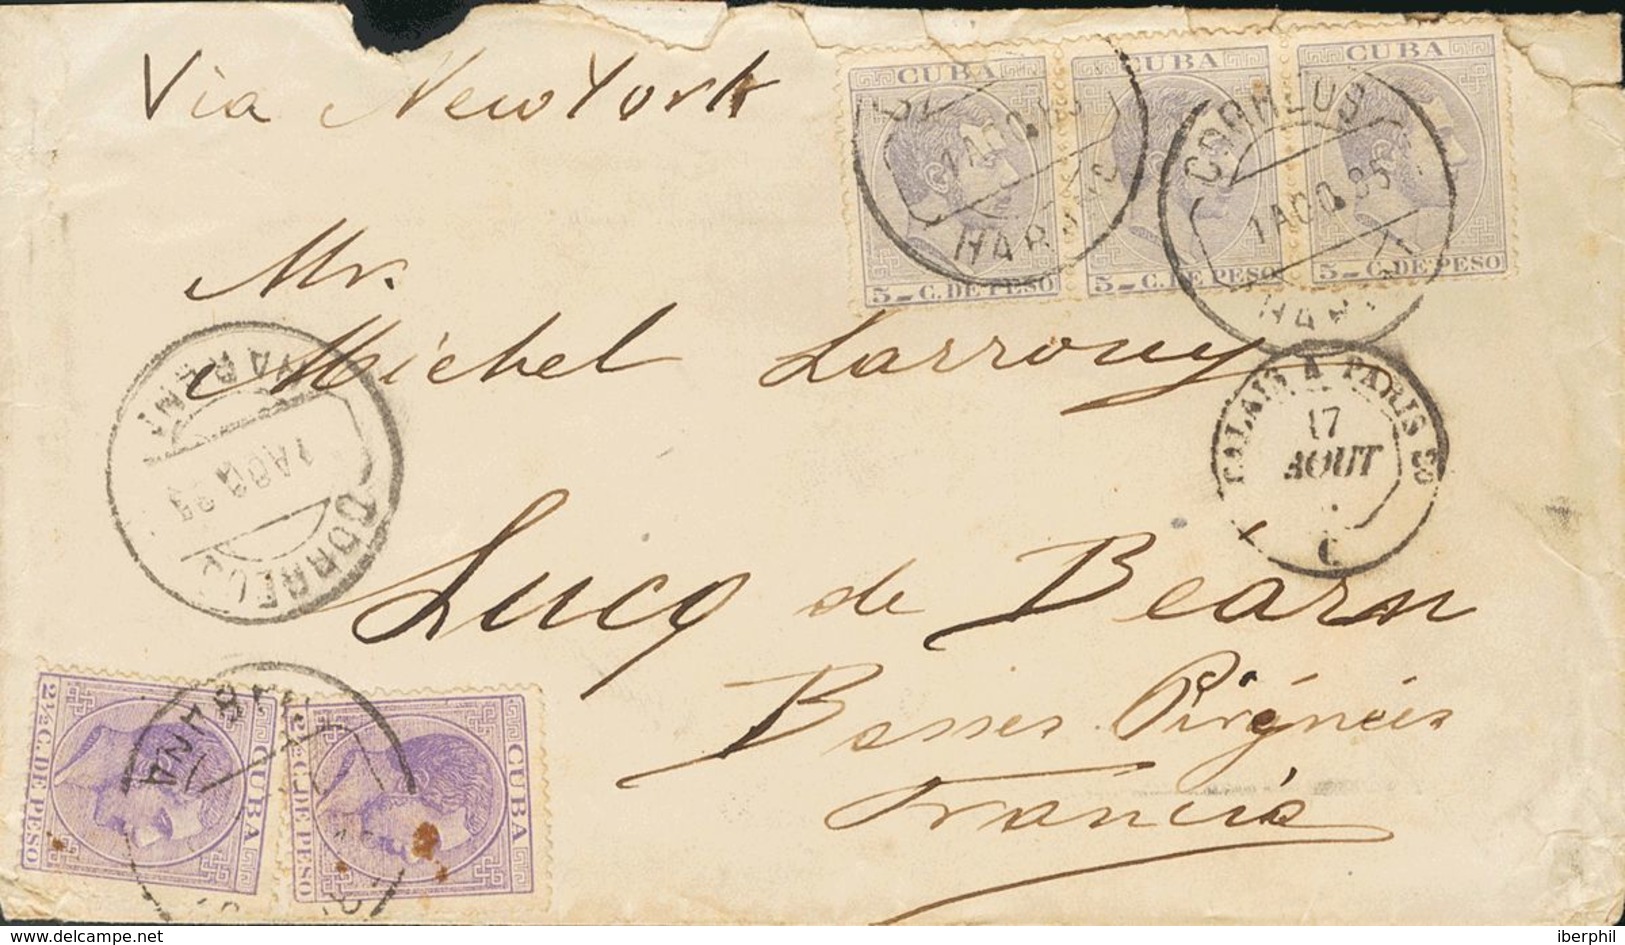 Via New York
CUBA
5 C. DE PESO
CUBA
5 C. DE PESO
CUBA
5 C. DE PESO
CORREOS
1 AGO. 85
HABANA
Mr.
Michel Larrouy
CALAIS A PARIS
17
AOUT
Lucq de Bearn
Basses Pirénéis
Francia
CORREOS
1 AGO 85
HABANA
CUBA
2½ C. DE PESO
CUBA
2½ C. DE PESO
HABANA
iberphil